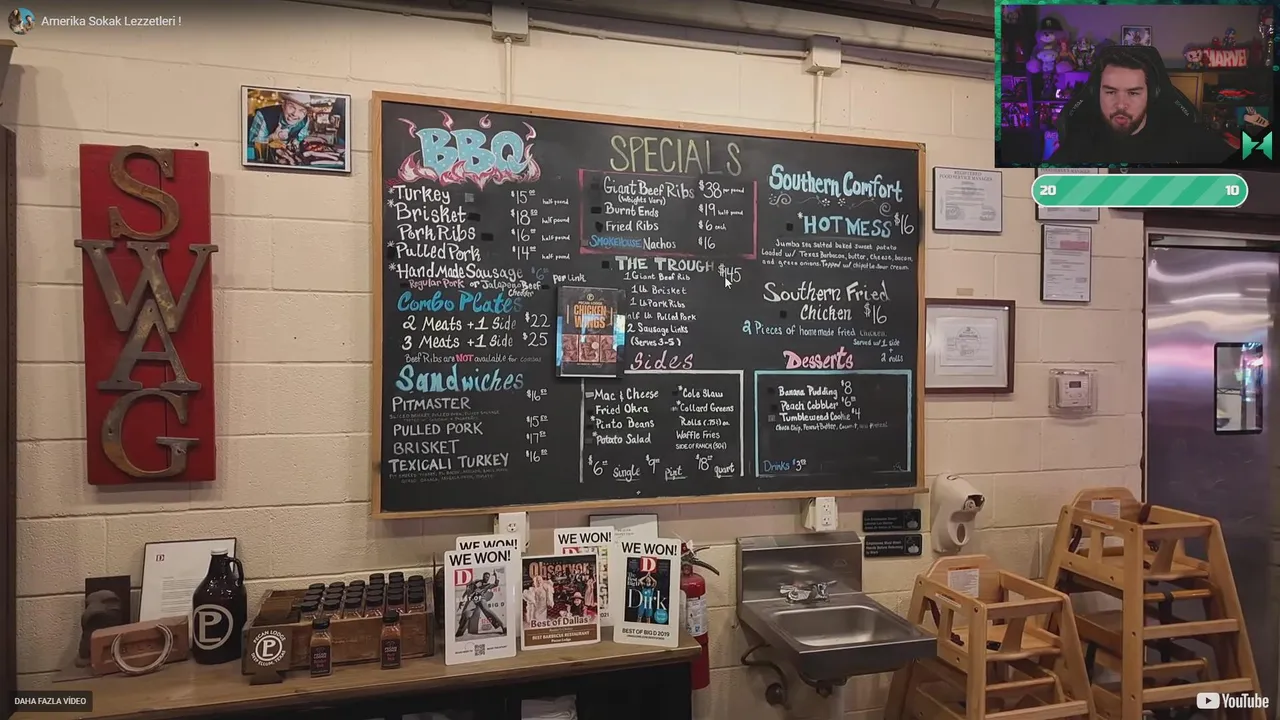 Amerika Sokak Lezzetleri !
MARVEL
20
10
SWAG
BBQ
*Turkey $15.00 half pound
*Brisket $18.00 half pound
Pork Ribs $16.00 half pound
*Pulled Pork $14.00 half pound
*Hand Made Sausage $6.00 per link
Regular Pork or Jalapeno Beef Cheddar
Combo Plates
2 Meats +1 Side $22
3 Meats +1 Side $25
Beef Ribs are NOT available for combos
Sandwiches
PITMASTER $16.00
PULLED PORK $15.00
BRISKET $17.00
TEXICALI TURKEY $16.00
SPECIALS
Giant Beef Ribs $38 per pound
(Weights Vary)
Burnt Ends $19 half pound
Fried Ribs $6 each
SMOKEHOUSE Nachos $16
THE TROUGH $45
1 Giant Beef Rib
1 lb Brisket
1 lb Pork Ribs
Half lb Pulled Pork
2 Sausage Links
(Serves 3-5)
PECAN LODGE
CHICKEN WINGS
Sides
Mac & Cheese
Fried Okra
*Pinto Beans
*Potato Salad
*Cole Slaw
*Collard Greens
Rolls (.75) ea
Waffle Fries
SIDE OF RANCH (50¢)
$6 Single $9 Pint $18 quart
Southern Comfort
*HOT MESS $16
Jumbo sea salted baked sweet potato
Loaded w/ Texas Barbacoa, butter, cheese, bacon,
and green onions. Topped w/ chipotle sour cream
Southern Fried
Chicken $16
2 Pieces of homemade fried chicken.
Served w/ 1 side
+
2 rolls
Desserts
Banana Pudding $8
Peach Cobbler $6
Tumbleweed Cookie $4
Drinks $3
WE WON!
WE WON!
WE WON!
WE WON!
D
BIG D
Observer
Best of Dallas
BEST BARBECUE RESTAURANT
Pecan Lodge
D
Dirk
BEST OF BIG D 2019
P
PECAN LODGE
P
DEEP ELLUM, TEXAS
DAHA FAZLA VİDEO
YouTube